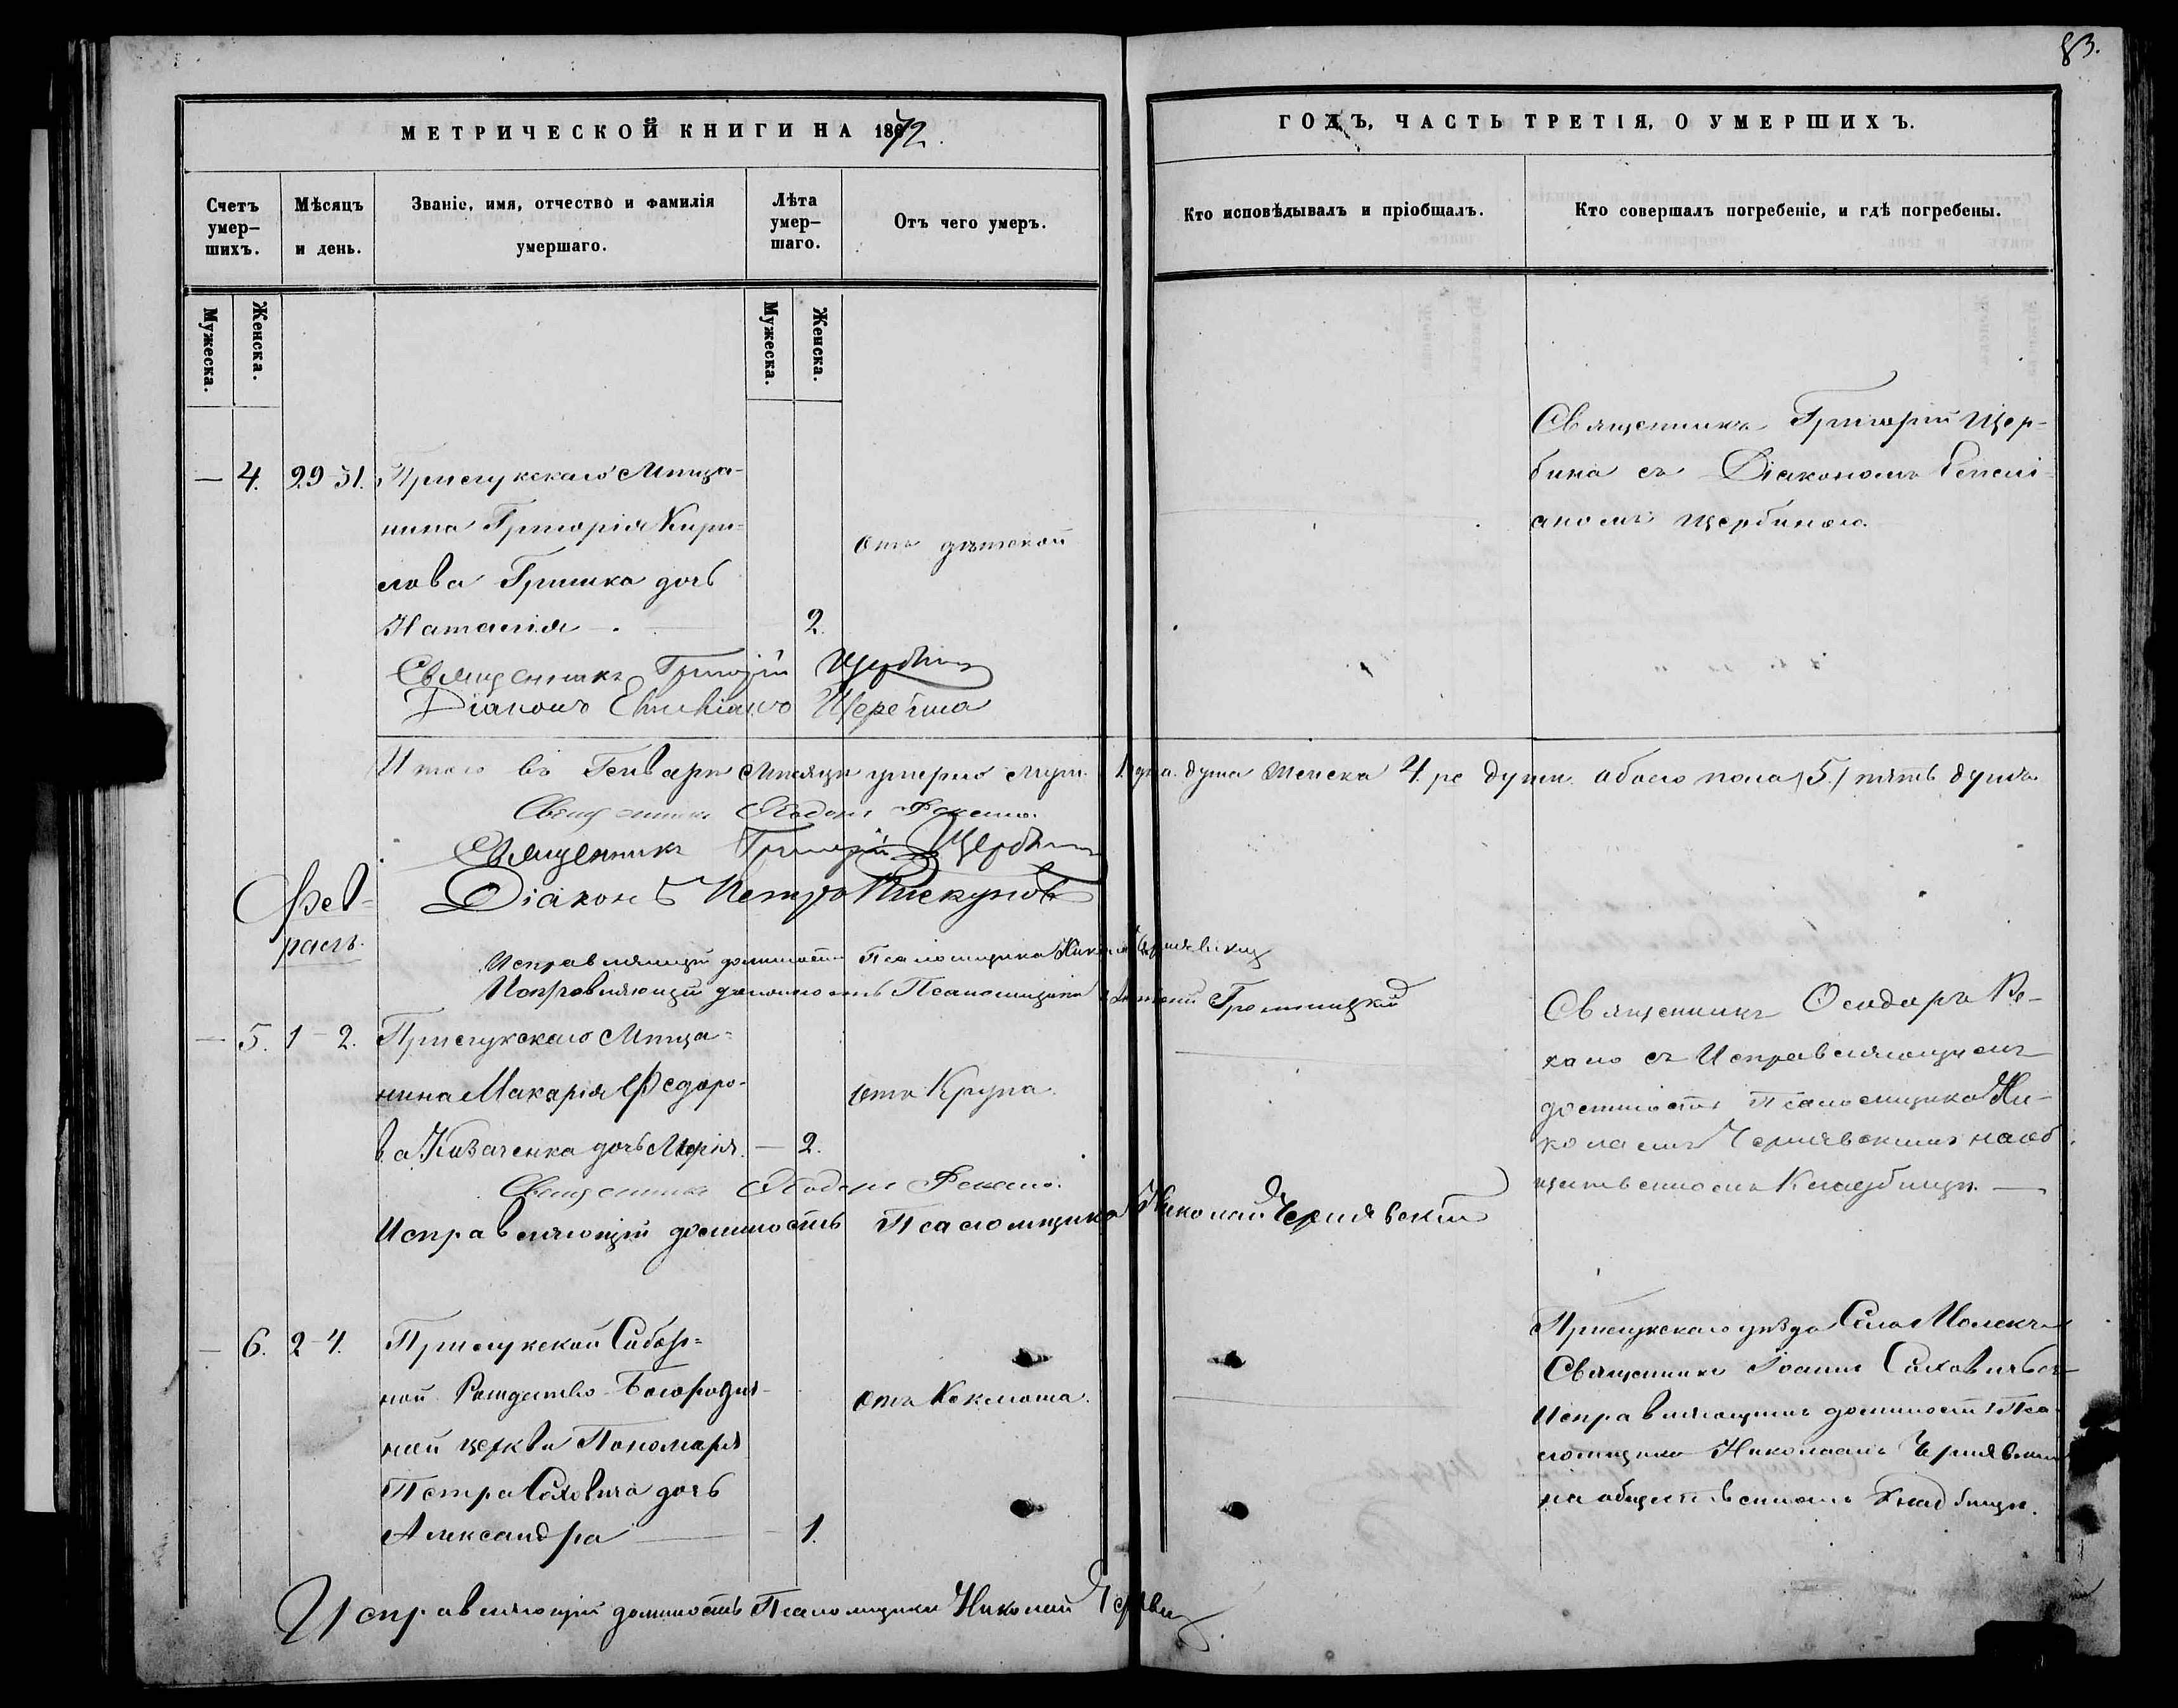 83.
МЕТРИЧЕСКОЙ КНИГИ НА 1872.
ГОДЪ, ЧАСТЬ ТРЕТІЯ, О УМЕРШИХЪ.
Счетъ умер-
шихъ.
Мѣсяцъ
и день.
Званіе, имя, отчество и фамилія
умершаго.
Лѣта
умер-
шаго.
Отъ чего умеръ.
Кто исповѣдывалъ и пріобщалъ.
Кто совершалъ погребеніе, и гдѣ погребены.
Мужеска.
Женска.
Мужеска.
Женска.
— 4. 29-31. Прилукскаго Мѣща-
нина Григорія Кири-
лова Гришка дочь
Наталія 2.
отъ дѣтской
Священникъ Григорій Щер-
бина съ Діакономъ
Щербиною.
Священникъ Григорій Щербина
Діаконъ Щербина
Итого въ Генварѣ Мѣсяцѣ умерло муж. 1 одна душа женска 4 души обоего пола /5/ пять душъ.
Священникъ Ѳеодоръ Рекало.
Священникъ Григорій Щербина
Діаконъ Петръ Пискуновъ
Фев-
раль.
Исправляющій должность Псаломщика Николай Чернявскій
Исправляющій должность Псаломщика Громницкій
— 5. 1-2. Прилукскаго Мѣща-
нина Макарія Федоро-
ва Казаченка дочь Марія — 2.
отъ Крупа.
Священникъ Ѳеодоръ Ре-
кало съ Исправляющимъ
должность Псаломщика Ни-
колаемъ Чернявскимъ на об-
щественномъ Кладбищѣ.
Священникъ Ѳеодоръ Рекало.
Исправляющій должность Псаломщика Николай Чернявскій
— 6. 2-4. Прилукской Собор-
ной Рождество-Богородич-
ной церкви Пономаря
Петра Саховича дочь
Александра 1.
отъ Коклюша.
Прилукскаго уѣзда Села
Священникъ Іоаннъ
Исправляющимъ должность Пса-
ломщика Николаемъ Чернявским
на общественномъ Кладбищѣ.
Исправляющій должность Псаломщика Николай